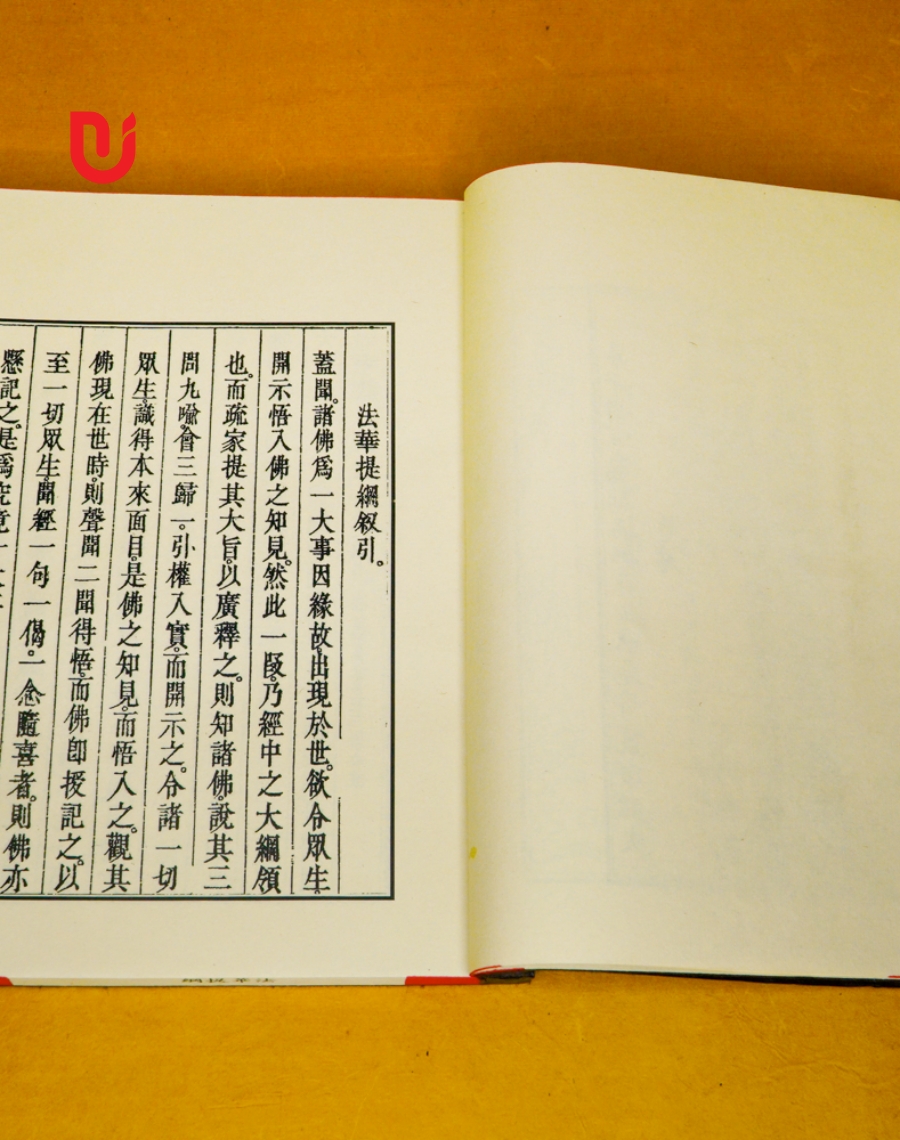 法華提綱叙引。
蓋聞。諸佛爲一大事因緣故。出現於世。欲令眾生
開示悟入佛之知見。然此一段。乃經中之大綱領
也。而疏家提其大旨。以廣釋之。則知諸佛。說其三
周九喩。會三歸一。引權入實。而開示之。令諸一切
眾生。識得本來面目。是佛之知見。而悟入之。觀其
佛現在世時。則聲聞二聞得悟。而佛卽授記之。以
至一切眾生。聞經一句一偈。一念隨喜者。則佛亦
懸記之。是爲究竟一大事
法華提綱